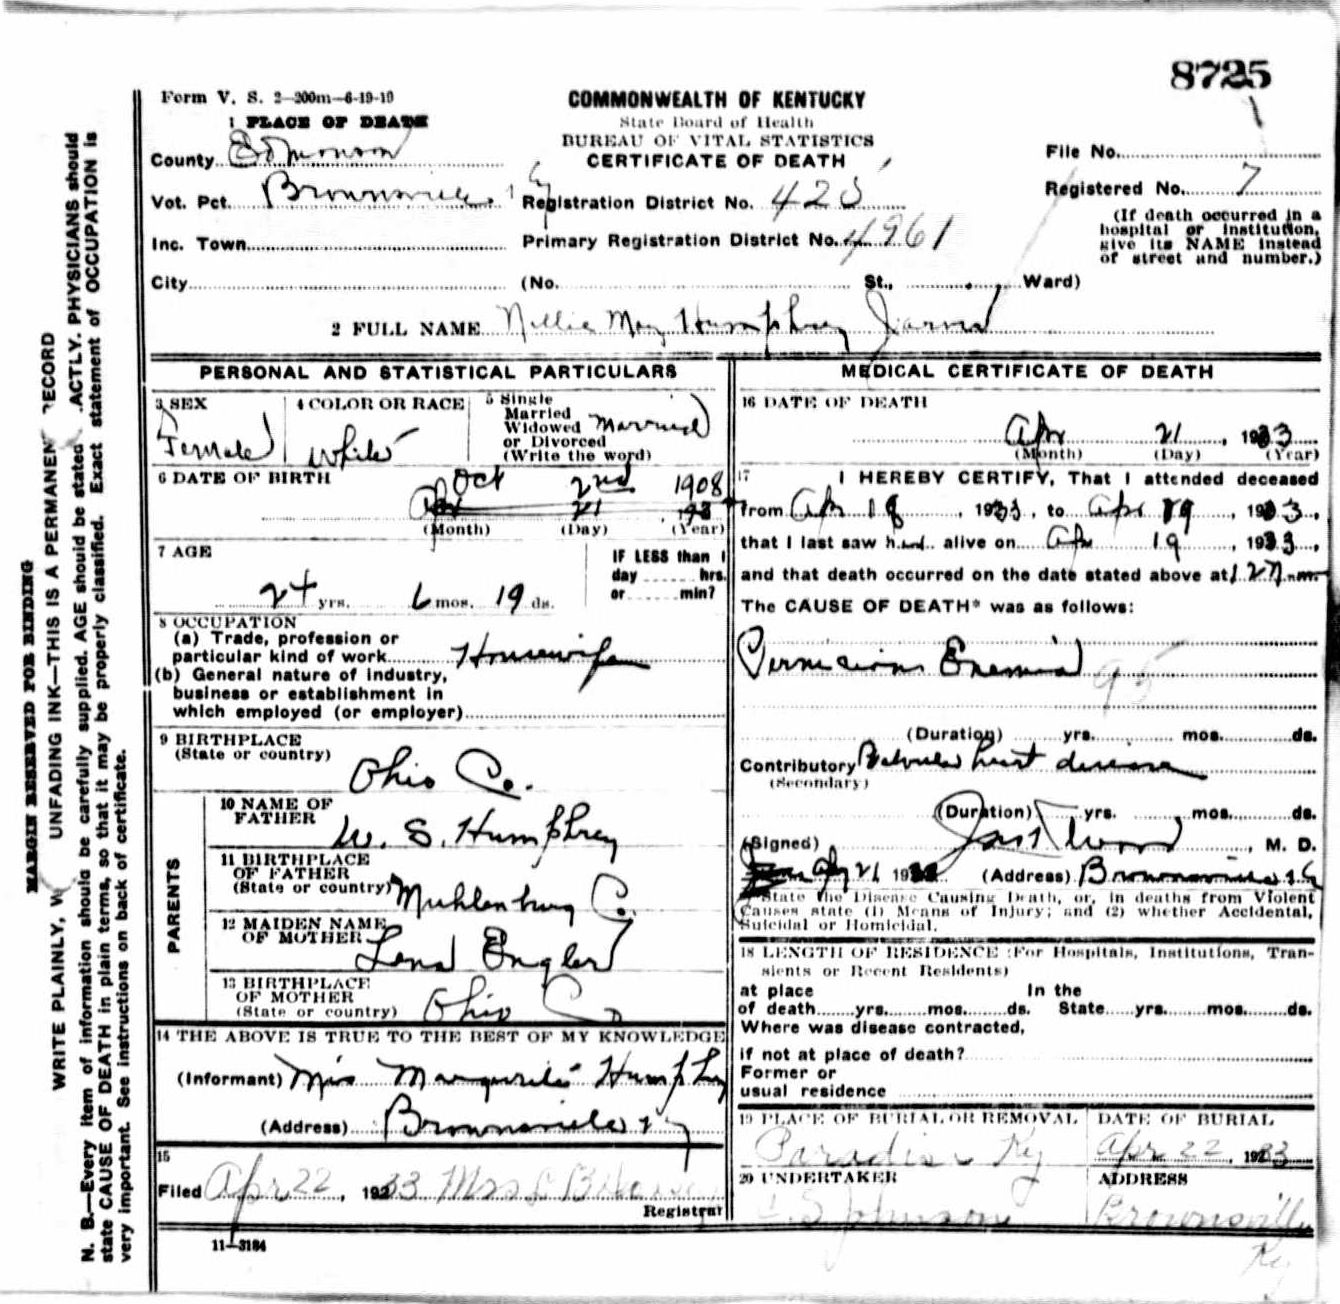 8725
Form V. S. 2—200m—6-19-19
COMMONWEALTH OF KENTUCKY
State Board of Health
BUREAU OF VITAL STATISTICS
CERTIFICATE OF DEATH
1 PLACE OF DEATH
County Edmonson
Vot. Pct. Brownsville
Inc. Town
City
Registration District No. 425
Primary Registration District No. 4961
(No. St., Ward)
File No.
Registered No. 7
(If death occurred in a
hospital or institution,
give its NAME instead
of street and number.)
2 FULL NAME Nellie May Humphrey Jarvis
PERSONAL AND STATISTICAL PARTICULARS
3 SEX
Female
4 COLOR OR RACE
White
5 Single
Married
Widowed
or Divorced
(Write the word)
Married
6 DATE OF BIRTH
Oct 2nd 1908
Apr 21
(Month) (Day) (Year)
7 AGE
24 yrs. 6 mos. 19 ds.
IF LESS than 1
day hrs.
or min?
8 OCCUPATION
(a) Trade, profession or
particular kind of work Housewife
(b) General nature of industry,
business or establishment in
which employed (or employer)
9 BIRTHPLACE
(State or country)
Ohio Co.
PARENTS
10 NAME OF
FATHER
W. S. Humphrey
11 BIRTHPLACE
OF FATHER
(State or country)
Muhlenburg Co.
12 MAIDEN NAME
OF MOTHER
Lena Engler
13 BIRTHPLACE
OF MOTHER
(State or country)
Ohio Co
14 THE ABOVE IS TRUE TO THE BEST OF MY KNOWLEDGE
(Informant) Miss Margurite Humphrey
(Address) Brownsville Ky
15
Filed Apr 22, 1933 Mrs L B
Registrar
11—3184
MEDICAL CERTIFICATE OF DEATH
16 DATE OF DEATH
Apr 21, 1933
(Month) (Day) (Year)
17
I HEREBY CERTIFY, That I attended deceased
from Apr 18, 1933, to Apr 19, 1933,
that I last saw her alive on Apr 19, 1933,
and that death occurred on the date stated above at 1 27 m
The CAUSE OF DEATH* was as follows:
Pernicious Enemia
95
(Duration) yrs. mos. ds.
Contributory Valvular heart disease
(Secondary)
(Duration) yrs. mos. ds.
(Signed) Wood, M. D.
Apr 21 19 (Address) Brownsville Ky
*State the Disease Causing Death, or, in deaths from Violent
Causes state (1) Means of Injury; and (2) whether Accidental,
Suicidal or Homicidal.
18 LENGTH OF RESIDENCE (For Hospitals, Institutions, Tran-
sients or Recent Residents)
at place In the
of death yrs. mos. ds. State yrs. mos. ds.
Where was disease contracted,
if not at place of death?
Former or
usual residence
19 PLACE OF BURIAL OR REMOVAL
Paradise Ky
DATE OF BURIAL
Apr 22, 1933
20 UNDERTAKER
Johnson
ADDRESS
Brownsville
Ky
MARGIN RESERVED FOR BINDING
WRITE PLAINLY, W UNFADING INK—THIS IS A PERMANEN RECORD
N. B.—Every item of information should be carefully supplied. AGE should be stated ACTLY. PHYSICIANS should
state CAUSE OF DEATH in plain terms, so that it may be properly classified. Exact statement of OCCUPATION is
very important. See instructions on back of certificate.